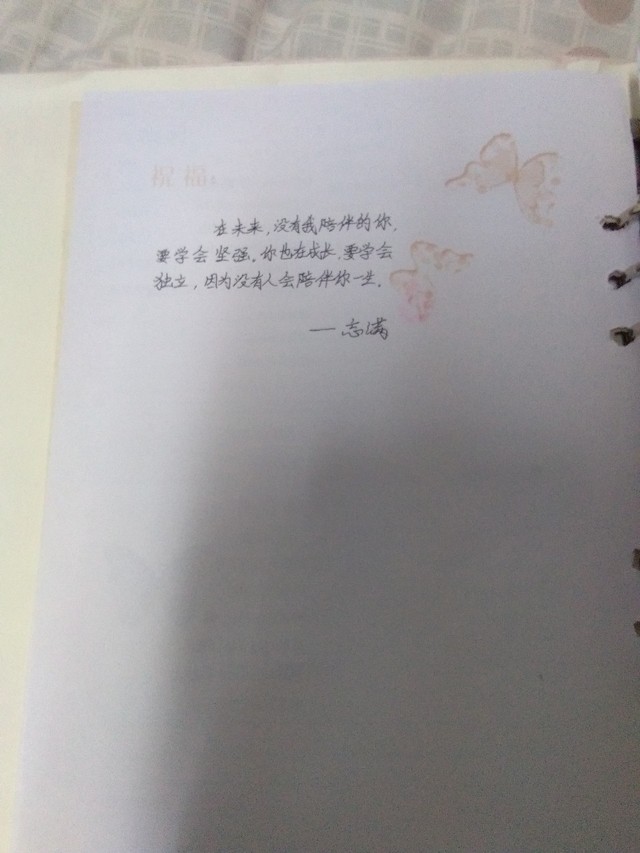 祝福:
在未来，没有我陪伴的你，
要学会坚强。你也在成长，要学会
独立，因为没有人会陪伴你一生。
——志满